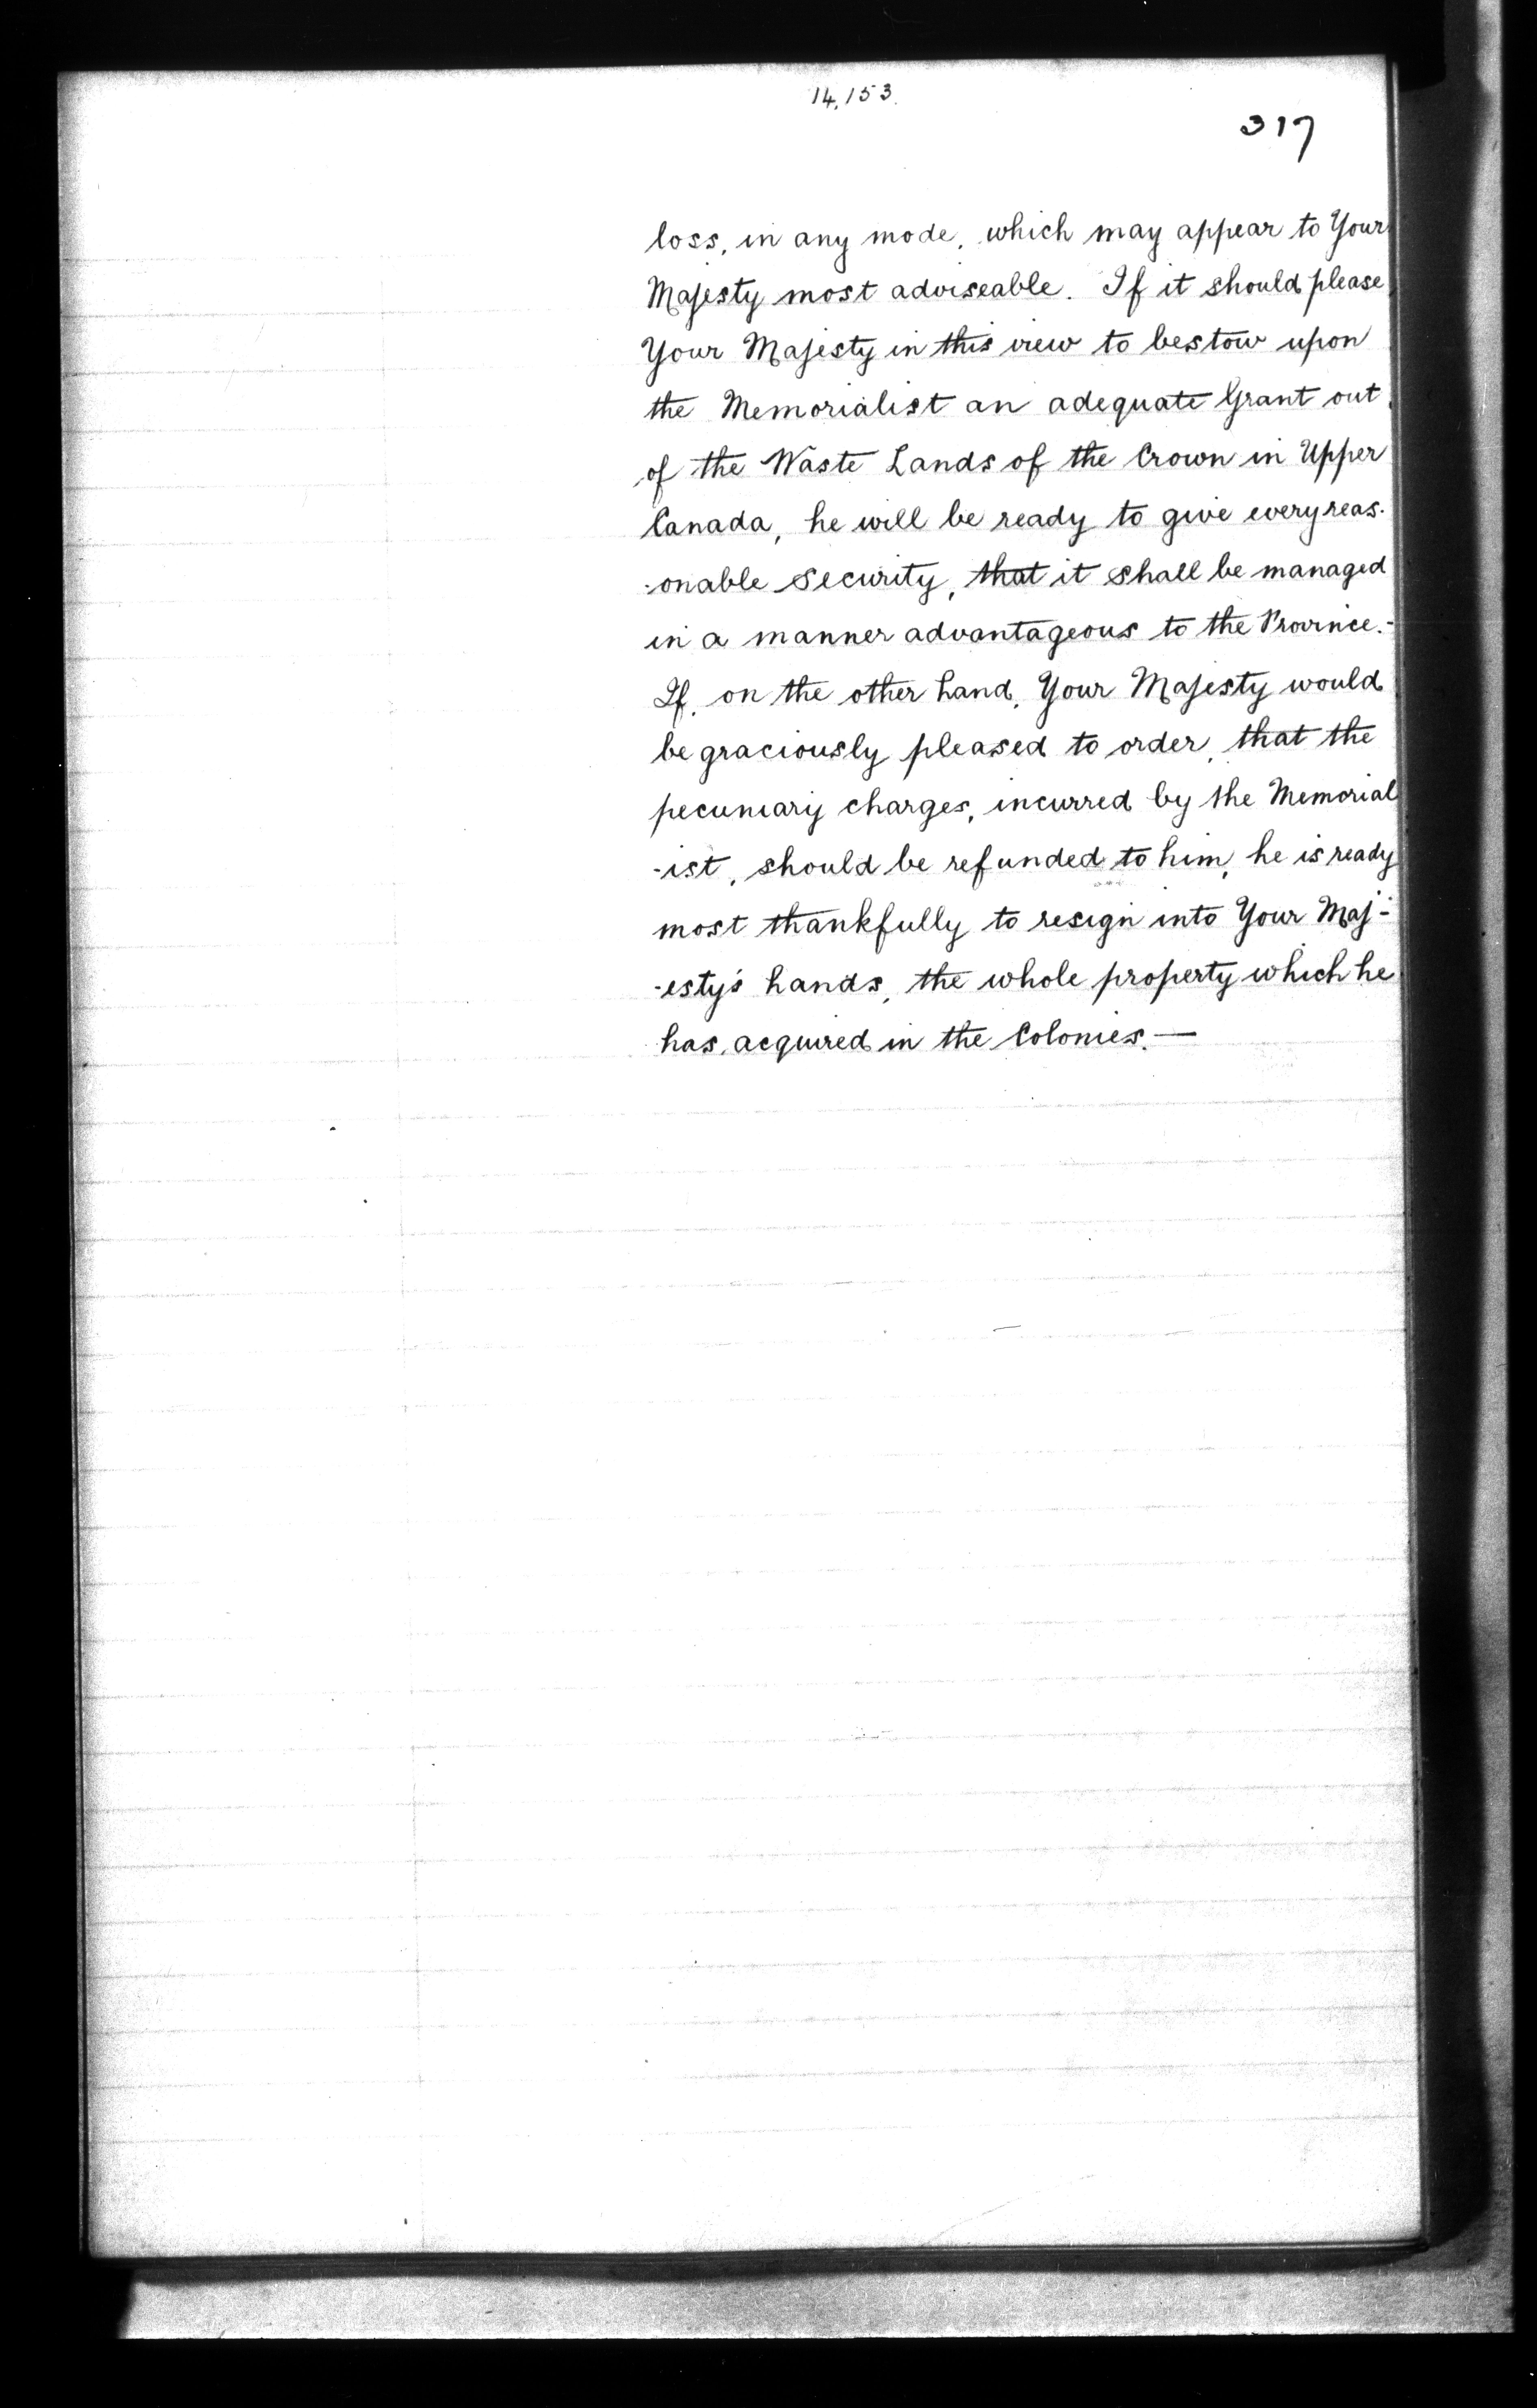 14,153.
317
loss, in any mode, which may appear to Your
Majesty most adviseable. If it should please
Your Majesty in this view to bestow upon
the Memorialist an adequate Grant out
of the Waste Lands of the Crown in Upper
Canada, he will be ready to give every reas-
-onable security, that it shall be managed
in a manner advantageous to the Province.-
If, on the other hand, Your Majesty would
be graciously pleased to order, that the
pecuniary charges, incurred by the Memorial
-ist, should be refunded to him, he is ready
most thankfully to resign into Your Maj-
-esty's hands, the whole property which he
has acquired in the Colonies.—